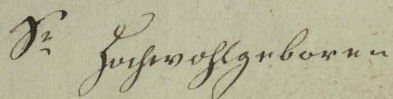 Sr Hochwohlgeboren